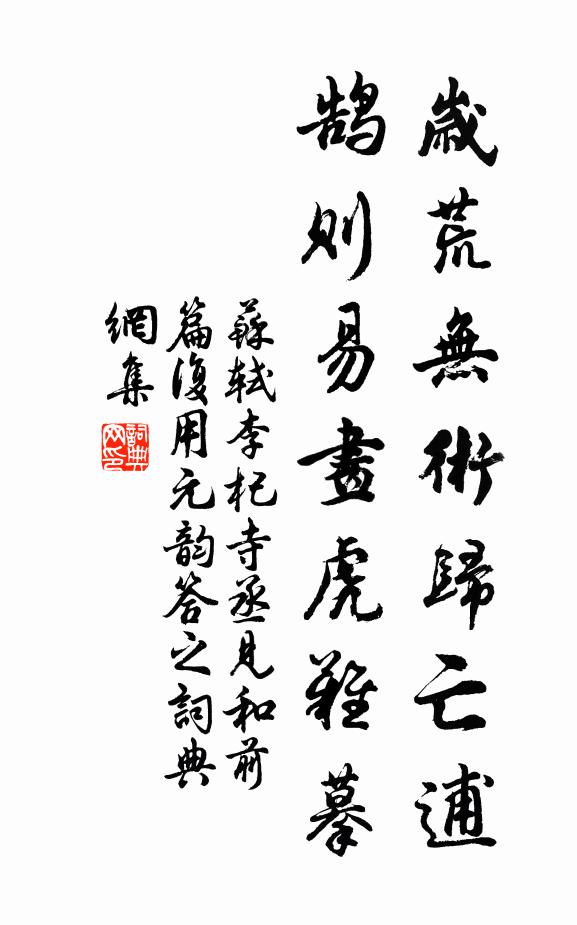 歲荒無術歸亡逋
鵠則易畫虎難摹
蘇軾李杞寺丞見和前
篇復用元韵答之詞典
網集
詞典
网印